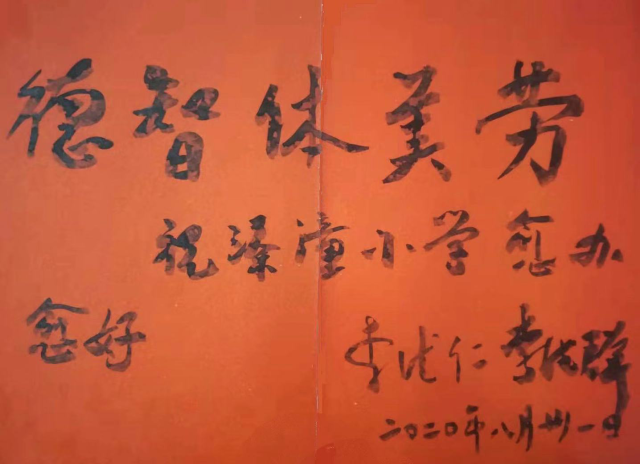 德智体美劳
祝溱潼小学愈办
愈好
李德仁 李德群
二〇二〇年八月卅一日